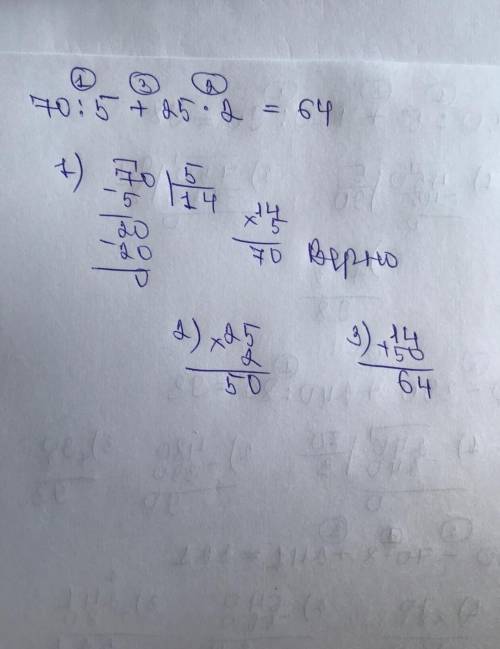 ① ③ ②
70:5 + 25·2 = 64
1) 70 5
- 5 14
20
- 20
0
× 14
5
70 Верно
2) × 25
2
50
3) + 14
50
64